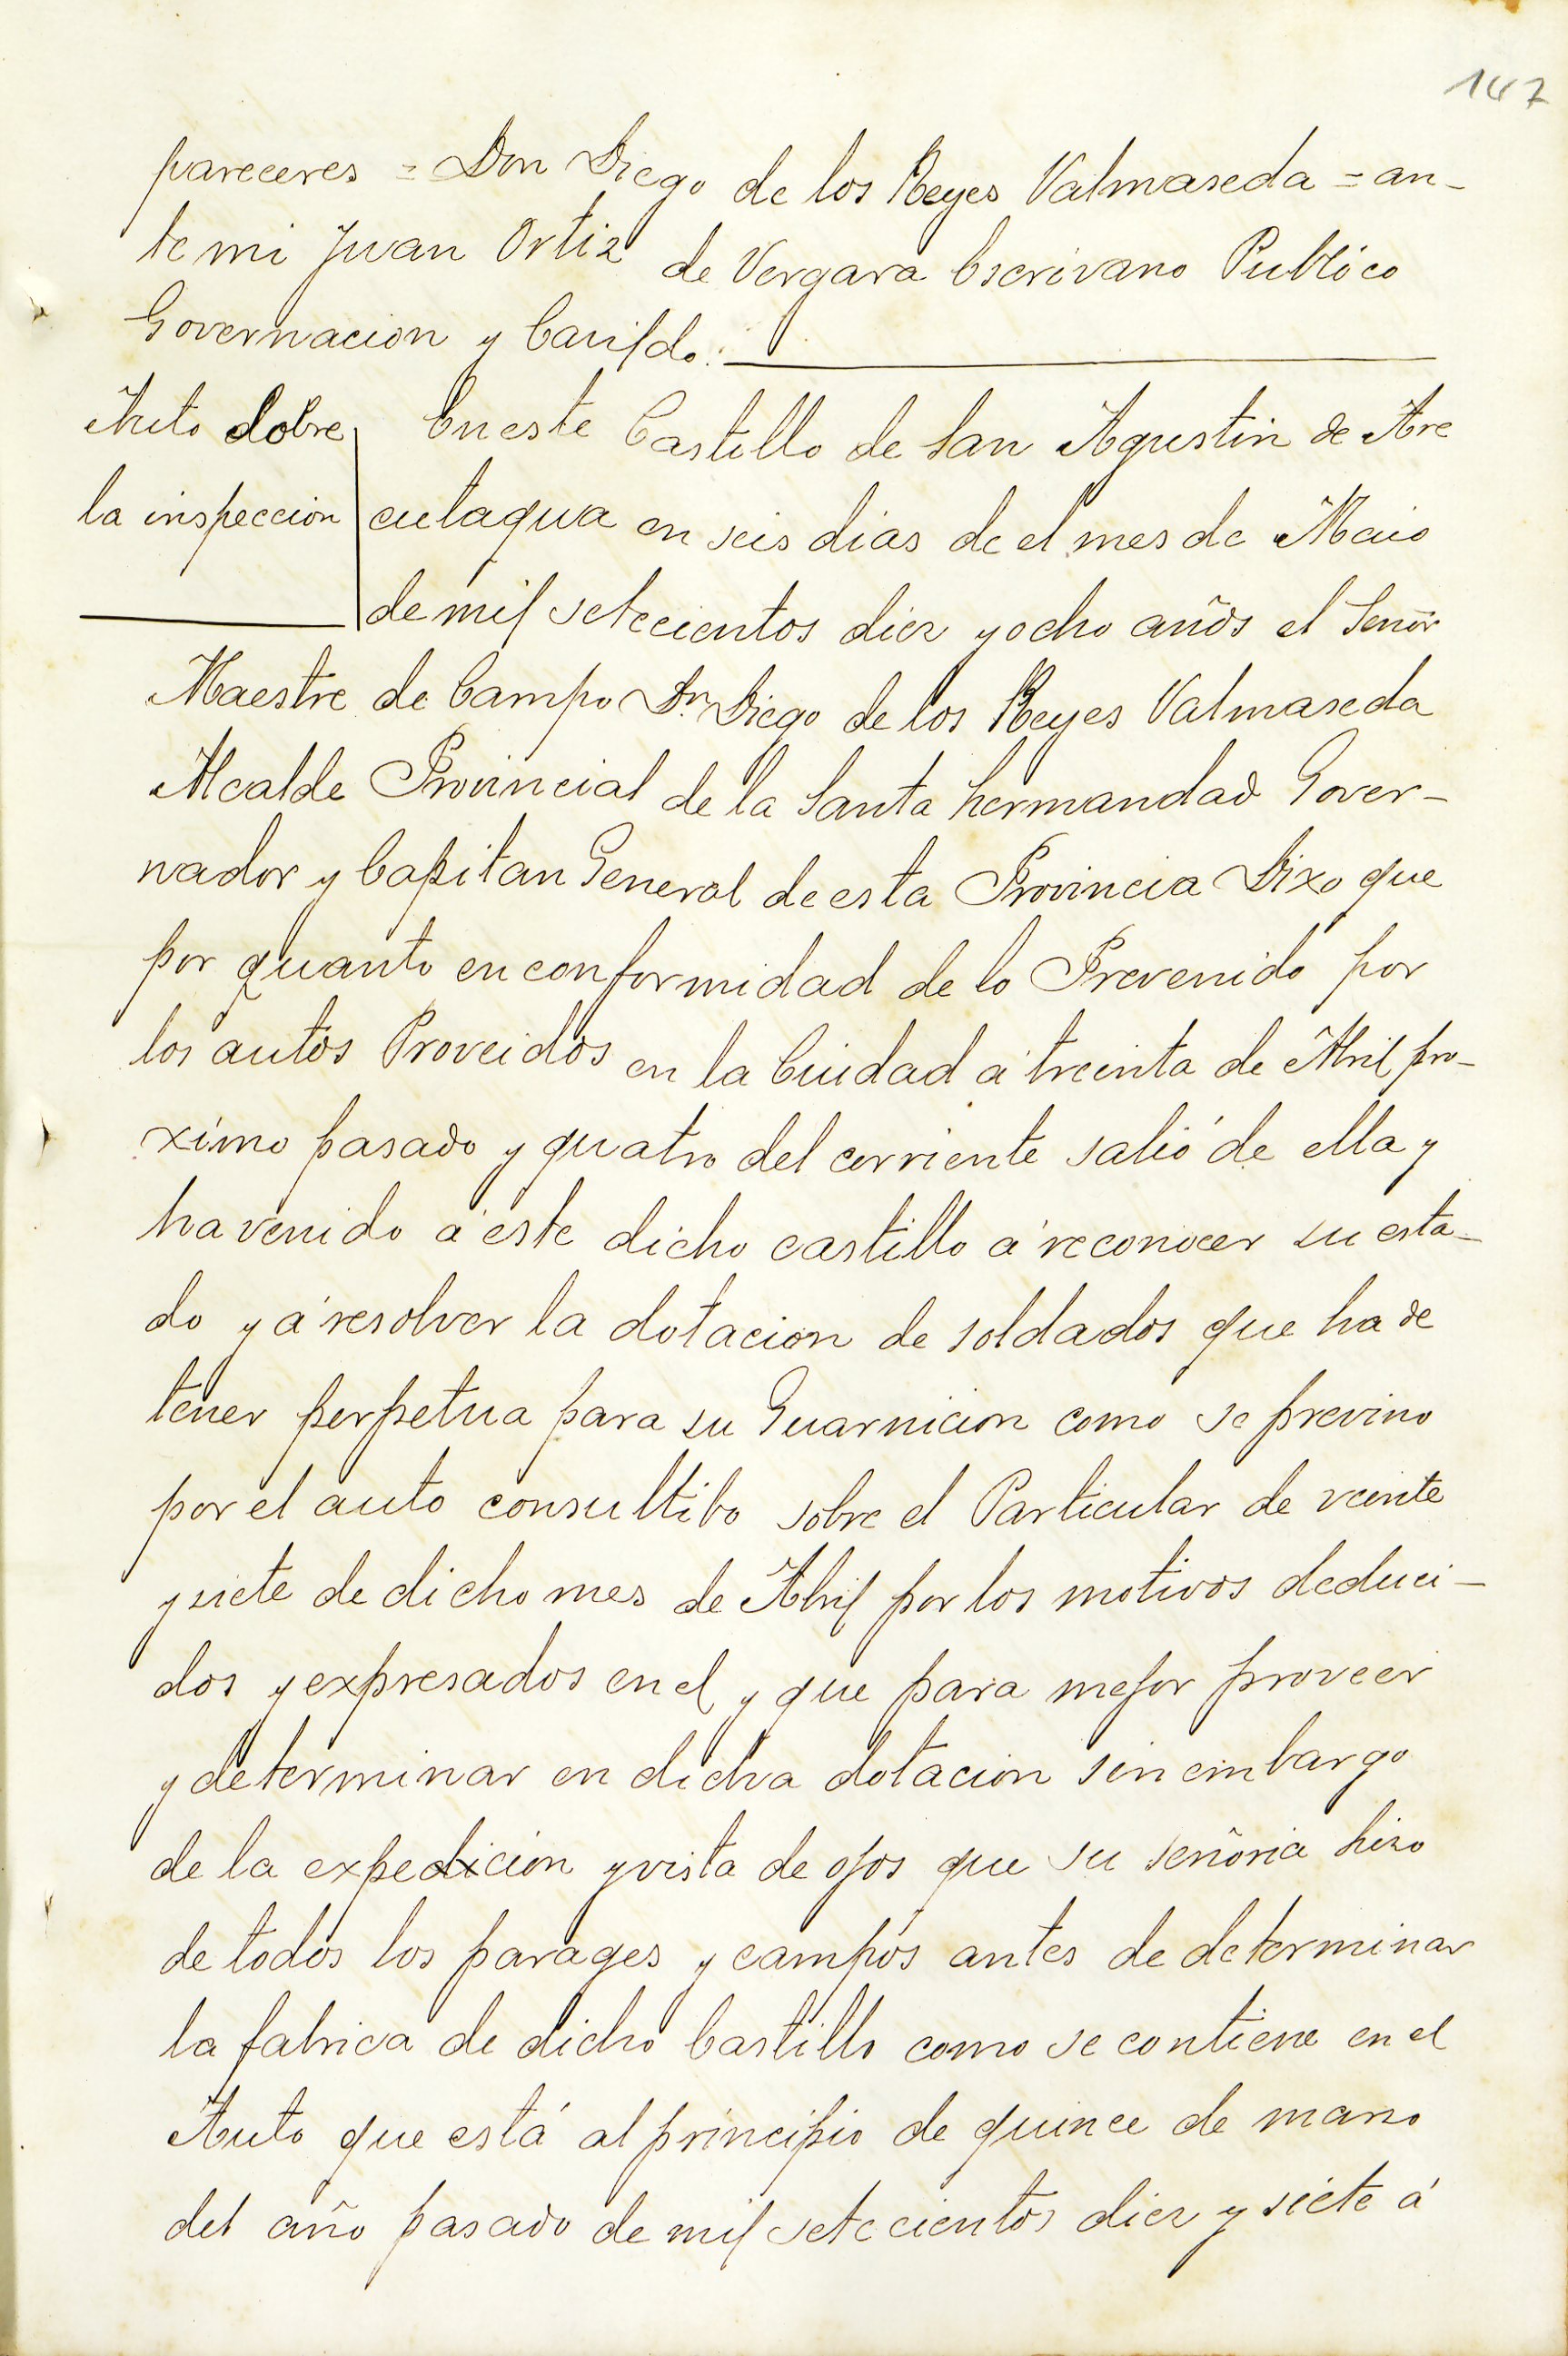 147
pareceres = Don Diego de los Reyes Valmaseda = an-
te mi Juan Ortiz de Vergara Escrivano Publico
Governacion y Cavildo.
Auto sobre
la inspeccion
En este Castillo de San Agustin de Are
cutagua en seis dias de el mes de Maio
de mil setecientos diez y ocho años el Señor
Maestre de Campo Dn. Diego de los Reyes Valmaseda
Alcalde Provincial de la Santa hermandad Gover-
nador y Capitan General de esta Provincia Dixo que
por quanto en conformidad de lo Prevenido por
los autos Proveidos en la Ciudad á treinta de Abril pro-
ximo pasado y quatro del corriente salió de ella y
ha venido á este dicho castillo á reconocer su esta-
do y á resolver la dotacion de soldados que ha de
tener perpetua para su Guarnicion como se previno
por el auto consultibo sobre el Particular de veinte
y siete de dicho mes de Abril por los motivos deduci-
dos y expresados en el y que para mejor proveer
y determinar en dicha dotacion sin embargo
de la expedicion y vista de ojos que su señoria hizo
de todos los parages y campos antes de determinar
la fabrica de dicho Castillo como se contiene en el
Auto que está al principio de quince de marzo
del año pasado de mil setecientos diez y siete á